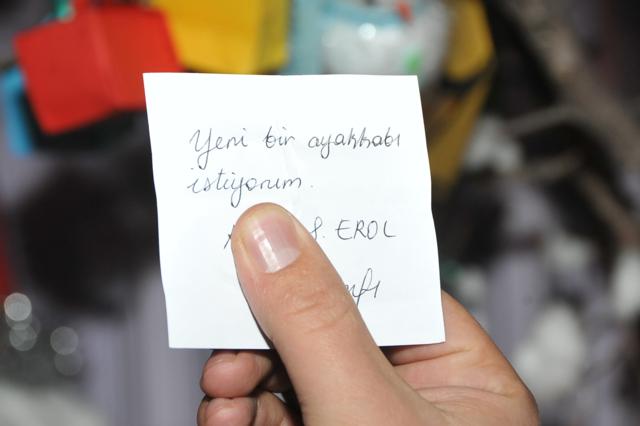 Yeni bir ayakkabı
istiyorum.
S. EROL